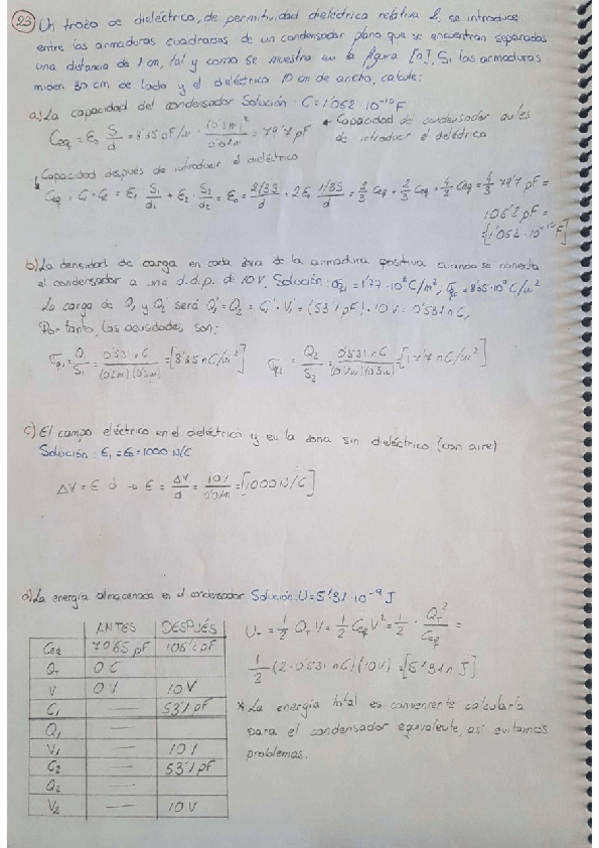 23) Un trozo de dieléctrico, de permitividad dieléctrica relativa 2, se introduce
entre las armaduras cuadradas de un condensador plano que se encuentran separadas
una distancia de 1 cm, tal y como se muestra en la figura [a]. Si las armaduras
miden 30 cm de lado y el dieléctrico 10 cm de ancho, calcule:
a) La capacidad del condensador Solución: C = 1'062 · 10^-10 F
Ceq = ε0 S/d = 8'85 pF/m · (0'3m)^2/0'01m = 79'7 pF * Capacidad del condensador antes
de introducir el dieléctrico
* Capacidad después de introducir el dieléctrico
Ceq = C1 + C2 = ε1 S1/d1 + ε2 · S2/d2 = ε0 = 2/3S/d + 2ε0 1/3S/d = 2/3 Ceq + 2/3 Ceq = 4/3 Ceq = 4/3 79'7 pF =
106'2 pF =
[1'062 · 10^-10 F]
b) La densidad de carga en cada zona de la armadura positiva cuando se conecta
el condensador a una d.d.p. de 10 V. Solución:
La carga de Q1 y Q2 será Q1 = Q2 = C1 · V1 = (53'1 pF) · 10 V = 0'531 nC,
Por tanto, las densidades son:
σ1 = Q1/S1 = 0'531 nC/(0'2m)(0'3m) = [8'85 nC/m^2] σ2 = Q2/S2 = 0'531 nC/(0'1m)(0'3m) = [17'7 nC/m^2]
c) El campo eléctrico en el dieléctrico y en la zona sin dieléctrico (con aire)
Solución: E1 = E0 = 1000 N/C
ΔV = E d → E = ΔV/d = 10V/0'01m = [1000 N/C]
d) La energía almacenada en el condensador Solución: U = 5'31 · 10^-9 J
ANTES DESPUÉS
Ceq 79'65 pF 106'2 pF
QT 0 C
V 0 V 10 V
C1 — 53'1 pF
Q1 —
V1 — 10 V
C2 — 53'1 pF
Q2 —
V2 — 10 V
UT = 1/2 QT V = 1/2 Ceq V^2 = 1/2 · QT^2/Ceq =
1/2 (2 · 0'531 nC)(10V) = [5'31 n J]
* La energía total es conveniente calcularla
para el condensador equivalente, así evitamos
problemas.